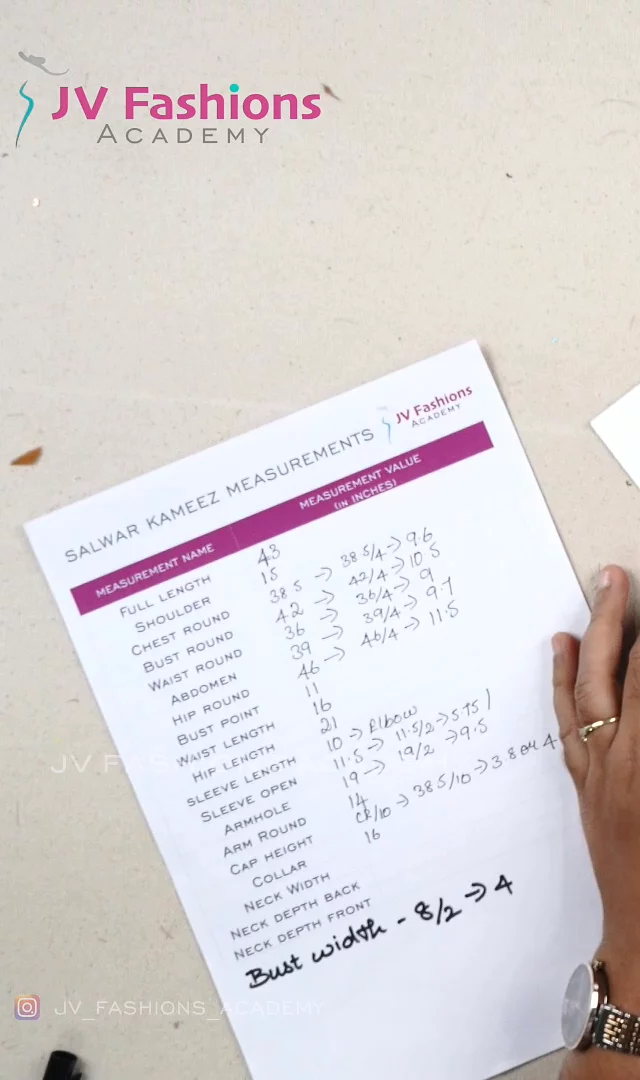 JV Fashions
ACADEMY
JV Fashions
ACADEMY
SALWAR KAMEEZ MEASUREMENTS
MEASUREMENT NAME MEASUREMENT VALUE (IN INCHES)
FULL LENGTH 43
SHOULDER 15
CHEST ROUND 38.5 → 38.5/4 → 9.6
BUST ROUND 42 → 42/4 → 10.5
WAIST ROUND 36 → 36/4 → 9
ABDOMEN 39 → 39/4 → 9.7
HIP ROUND 46 → 46/4 → 11.5
BUST POINT 11
WAIST LENGTH 16
HIP LENGTH 21
SLEEVE LENGTH 10 → Elbow
SLEEVE OPEN 11.5 → 11.5/2 → 5.75
ARMHOLE 19 → 19/2 → 9.5
ARM ROUND 14
CAP HEIGHT CR/10 → 38.5/10 → 3.8 or 4
COLLAR 16
NECK WIDTH
NECK DEPTH BACK
NECK DEPTH FRONT
Bust width - 8/2 → 4
JV_FASHIONS_ACADEMY